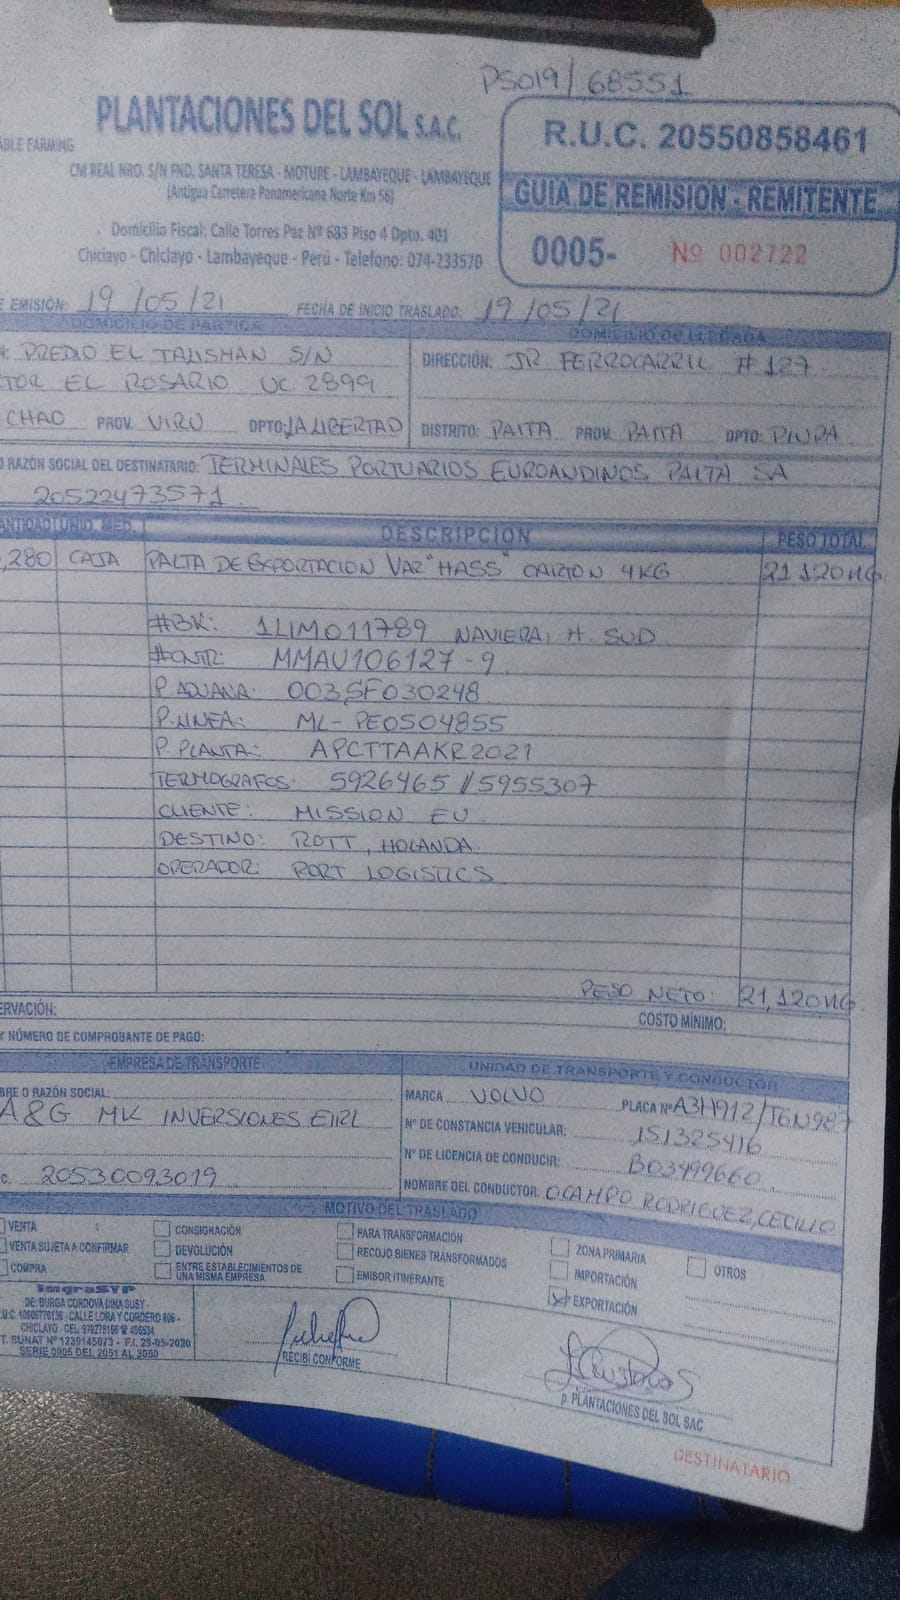 PS019/68551
PLANTACIONES DEL SOL S.A.C.
ABLE FARMING
CM REAL NRO. S/N FND. SANTA TERESA - MOTUPE - LAMBAYEQUE - LAMBAYEQUE
(Antigua Carretera Panamericana Norte Km 56)
Domicilio Fiscal: Calle Torres Paz Nº 683 Piso 4 Dpto. 401
Chiclayo - Chiclayo - Lambayeque - Perú - Telefono: 074-233570
R.U.C. 20550858461
GUIA DE REMISION - REMITENTE
0005- Nº 002722
E EMISIÓN: 19/05/21 FECHA DE INICIO TRASLADO: 19/05/21
DOMICILIO DE PARTIDA
N: PREDIO EL TALISMAN S/N
TOR EL ROSARIO UC 2899
CHAO PROV. VIRU DPTO: LA LIBERTAD
DOMICILIO DE LLEGADA
DIRECCIÓN: JR FERROCARRIL # 127
DISTRITO: PAITA PROV. PAITA DPTO: PIURA
O RAZÓN SOCIAL DEL DESTINATARIO: TERMINALES PORTUARIOS EUROANDINOS PAITA SA
20522473571
ANTIDAD UNID. MED. DESCRIPCION PESO TOTAL
,280 CAJA PALTA DE EXPORTACION VAR "HASS" CARTON 4KG 21,120KG
#BK: 1LIM011789 NAVIERA: H. SUD
#CNTR: MMAU106127-9
P. ADUANA: 003SF030248
P. LINEA: ML-PE0504855
P. PLANTA: APCTTAAKR2021
TERMOGRAFOS: 5926465//5955307
CLIENTE: MISSION EU
DESTINO: ROTT, HOLANDA
OPERADOR: PORT LOGISTICS
PESO NETO: 21,120KG
ERVACIÓN:
COSTO MÍNIMO:
Y NÚMERO DE COMPROBANTE DE PAGO:
EMPRESA DE TRANSPORTE
BRE O RAZÓN SOCIAL:
A&G MK INVERSIONES EIRL
C. 20530093019
UNIDAD DE TRANSPORTE Y CONDUCTOR
MARCA VOLVO PLACA Nº A3H912/TGN987
Nº DE CONSTANCIA VEHICULAR: 151325416
Nº DE LICENCIA DE CONDUCIR: B03499660
NOMBRE DEL CONDUCTOR: OCAMPO RODRIGUEZ, CECILIO
MOTIVO DEL TRASLADO
VENTA
VENTA SUJETA A CONFIRMAR
COMPRA
CONSIGNACIÓN
DEVOLUCIÓN
ENTRE ESTABLECIMIENTOS DE
UNA MISMA EMPRESA
PARA TRANSFORMACIÓN
RECOJO BIENES TRANSFORMADOS
EMISOR ITINERANTE
ZONA PRIMARIA
IMPORTACIÓN
EXPORTACIÓN
OTROS
ImgraSYP
DE: BURGA CORDOVA DINA SUSY -
CALLE LORA Y CORDERO 806 -
CHICLAYO - CEL.
T. SUNAT Nº 1239145073 - F.I. 29-05-2020
SERIE 0005 DEL 2051 AL 3050
RECIBÍ CONFORME
p. PLANTACIONES DEL SOL SAC
DESTINATARIO